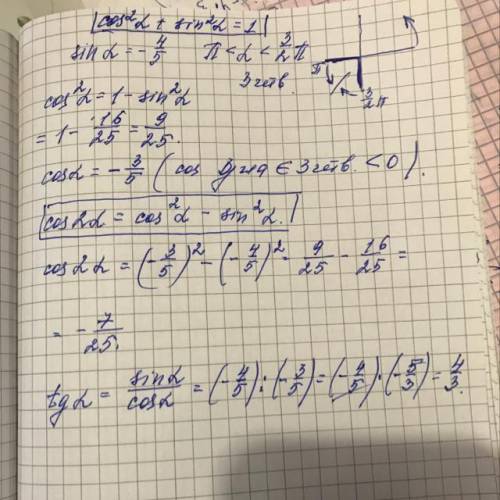 cos²α + sin²α = 1
sin α = -4/5   π < α < 3/2 π
3 четв.
π
3/2 π
cos²α = 1 - sin²α
= 1 - 16/25 = 9/25.
cos α = -3/5 ( cos ∈ 3 четв. < 0 ).
cos 2α = cos²α - sin²α.
cos 2α = (-3/5)² - (-4/5)² = 9/25 - 16/25 =
= -7/25.
tg α = sin α / cos α = (-4/5) : (-3/5) = (-4/5) · (-5/3) = 4/3.